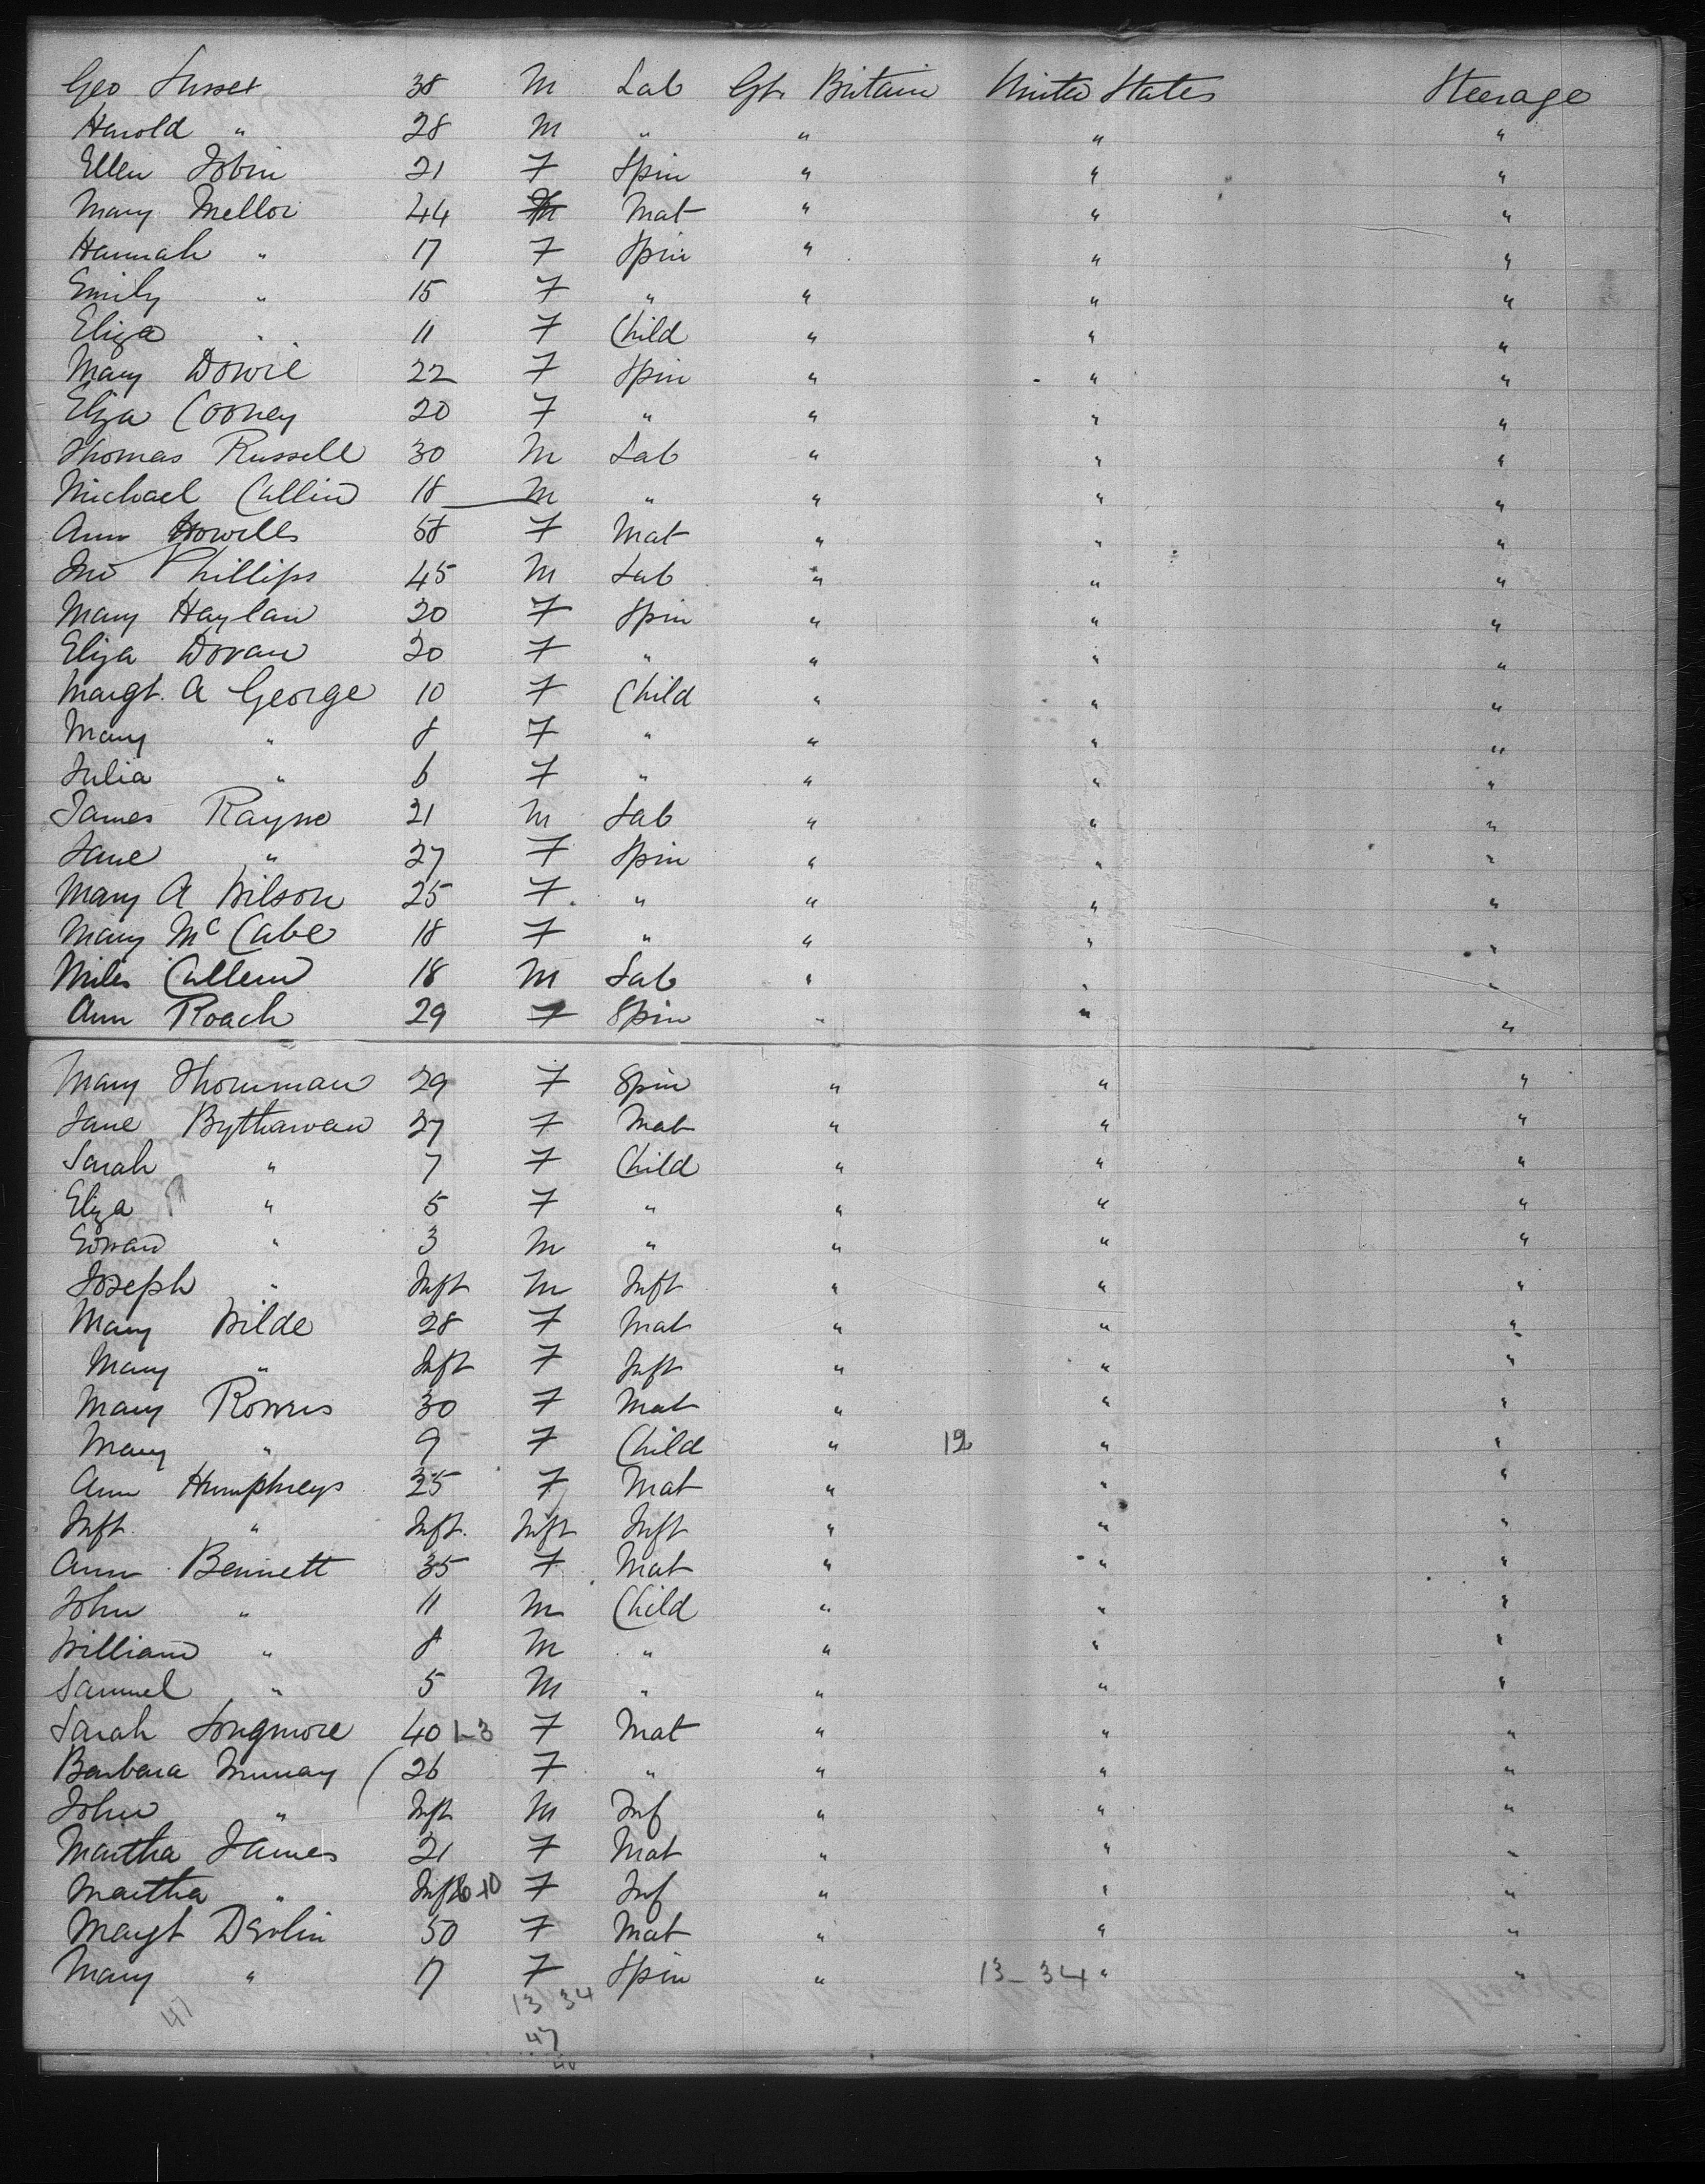 Geo Susset 38 M Lab Gt. Britain United States Steerage
Harold " 28 M " " " "
Ellen Tobin 21 F Spin " " "
Mary Mellor 44 Mat " " "
Hannah " 17 F Spin " " "
Emily " 15 F " " " "
Eliza " 11 F Child " " "
Mary Dowie 22 F Spin " " "
Eliza Cooney 20 F " " " "
Thomas Russell 30 M Lab " " "
Michael Cullin 18 M " " " "
Ann Howells 58 F Mat " " "
Jno Phillips 45 M Lab " " "
Mary Haylan 20 F Spin " " "
Eliza Doran 20 F " " " "
Margt. A George 10 F Child " " "
Mary " 8 F " " " "
Julia " 6 F " " " "
James Rayne 21 M Lab " " "
Jane " 27 F Spin " " "
Mary A Wilson 25 F " " " "
Mary McCabe 18 F " " " "
Miles Cullen 18 M Lab " " "
Ann Roach 29 F Spin " " "
Mary Thornman 29 F Spin " " "
Jane Bythawan 27 F Mat " " "
Sarah " 7 F Child " " "
Eliza " 5 F " " " "
Edward " 3 M " " " "
Joseph " Inft M Inft " " "
Mary Wilde 28 F Mat " " "
Mary " Inft F Inft " " "
Mary 30 F Mat " " "
Mary " 9 F Child " 12 " "
Ann Humphreys 35 F Mat " " "
Inft " Inft. Inft Inft " " "
Ann Bennett 35 F Mat " " "
John " 11 M Child " " "
William " 8 M " " " "
Samuel " 5 M " " " "
Sarah Longmore 40 1-3 F Mat " " "
Barbara Murray ( 26 F " " " "
John " Inft M Inf " " "
Martha James 21 F Mat " " "
Martha " Inft F Inf " " "
Margt Devlin 50 F Mat " " "
Mary " 17 F Spin " 13-34 " "
47 13 34
47